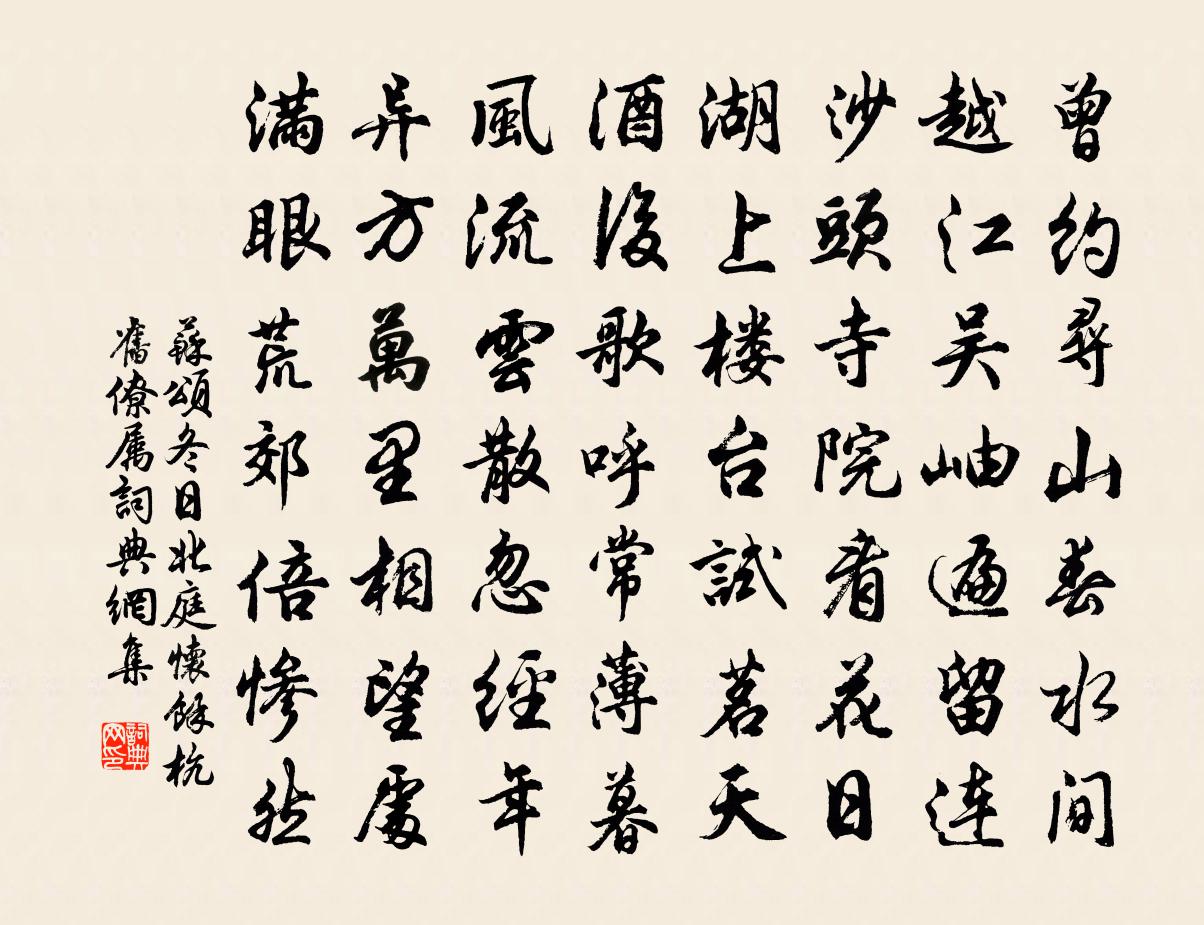 曾约尋山春水间
越江吴岫遍留连
沙頭寺院看花日
湖上楼台試茗天
酒後歌呼常薄暮
風流雲散忽經年
异方萬里相望處
满眼荒郊倍惨然
蘇頌冬日北庭懷餘杭
舊僚属詞典網集
詞典网印